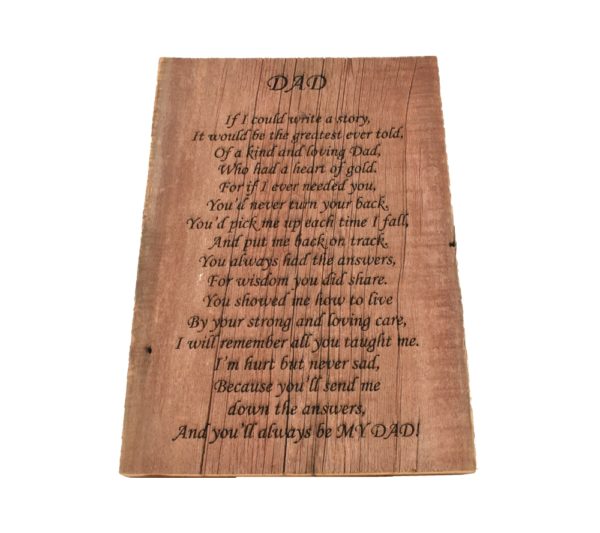 DAD
If I could write a story,
It would be the greatest ever told,
Of a kind and loving Dad,
Who had a heart of gold.
For if I ever needed you,
You'd never turn your back.
You'd pick me up each time I fall,
And put me back on track.
You always had the answers,
For wisdom you did share.
You showed me how to live
By your strong and loving care,
I will remember all you taught me.
I'm hurt but never sad,
Because you'll send me
down the answers,
And you'll always be MY DAD!